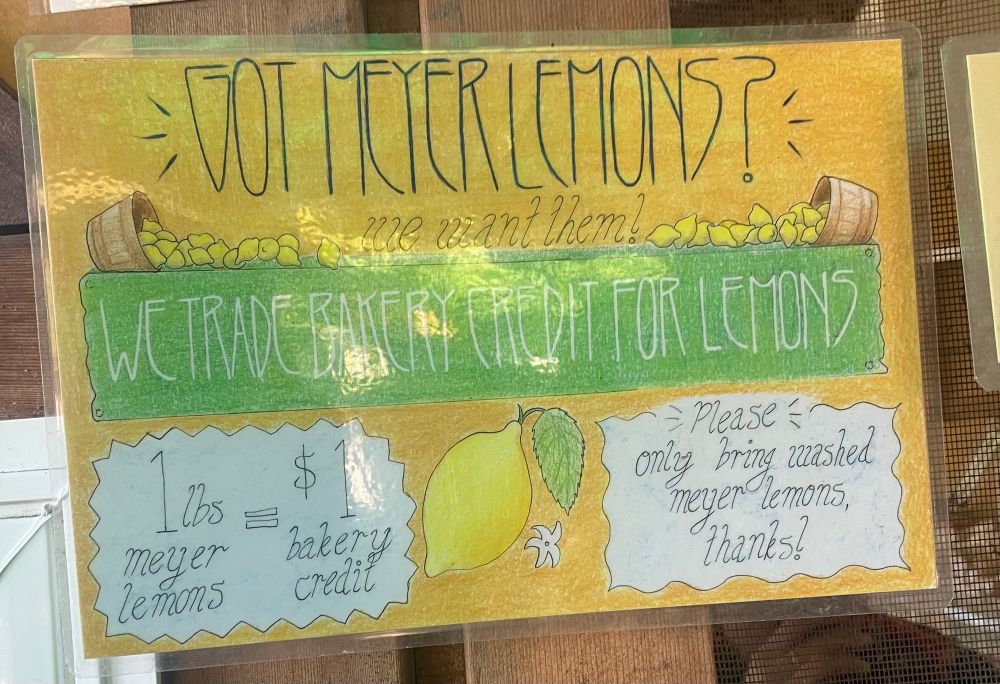 GOT MEYER LEMONS?
we want them!
WE TRADE BAKERY CREDIT FOR LEMONS
1 lbs = $1
meyer bakery
lemons credit
Please
only bring washed
meyer lemons,
thanks!